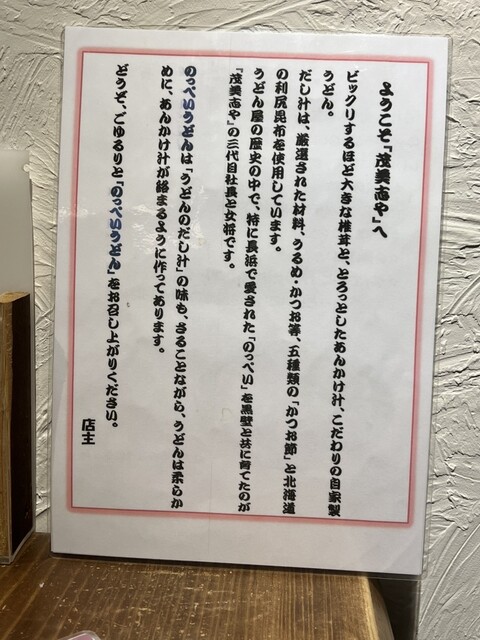 ようこそ「茂美志や」へ
ビックリするほど大きな椎茸と、とろっとしたあんかけ汁、こだわりの自家製
うどん。
だし汁は、厳選された材料、うるめ・かつお等、五種類の「かつお節」と北海道
の利尻昆布を使用しています。
うどん屋の歴史の中で、特に長浜で愛された「のっぺい」を黒壁と共に育てたのが
「茂美志や」の三代目社長と女将です。
のっぺいうどんは「うどんのだし汁」の味も、さることながら、うどんは柔らか
めに、あんかけ汁が絡まるように作ってあります。
どうぞ、ごゆるりと「のっぺいうどん」をお召し上がりください。
店主